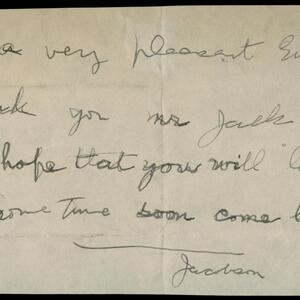 a very pleasant
you mr Jack
hope that your will
some Time soon come
Jackson